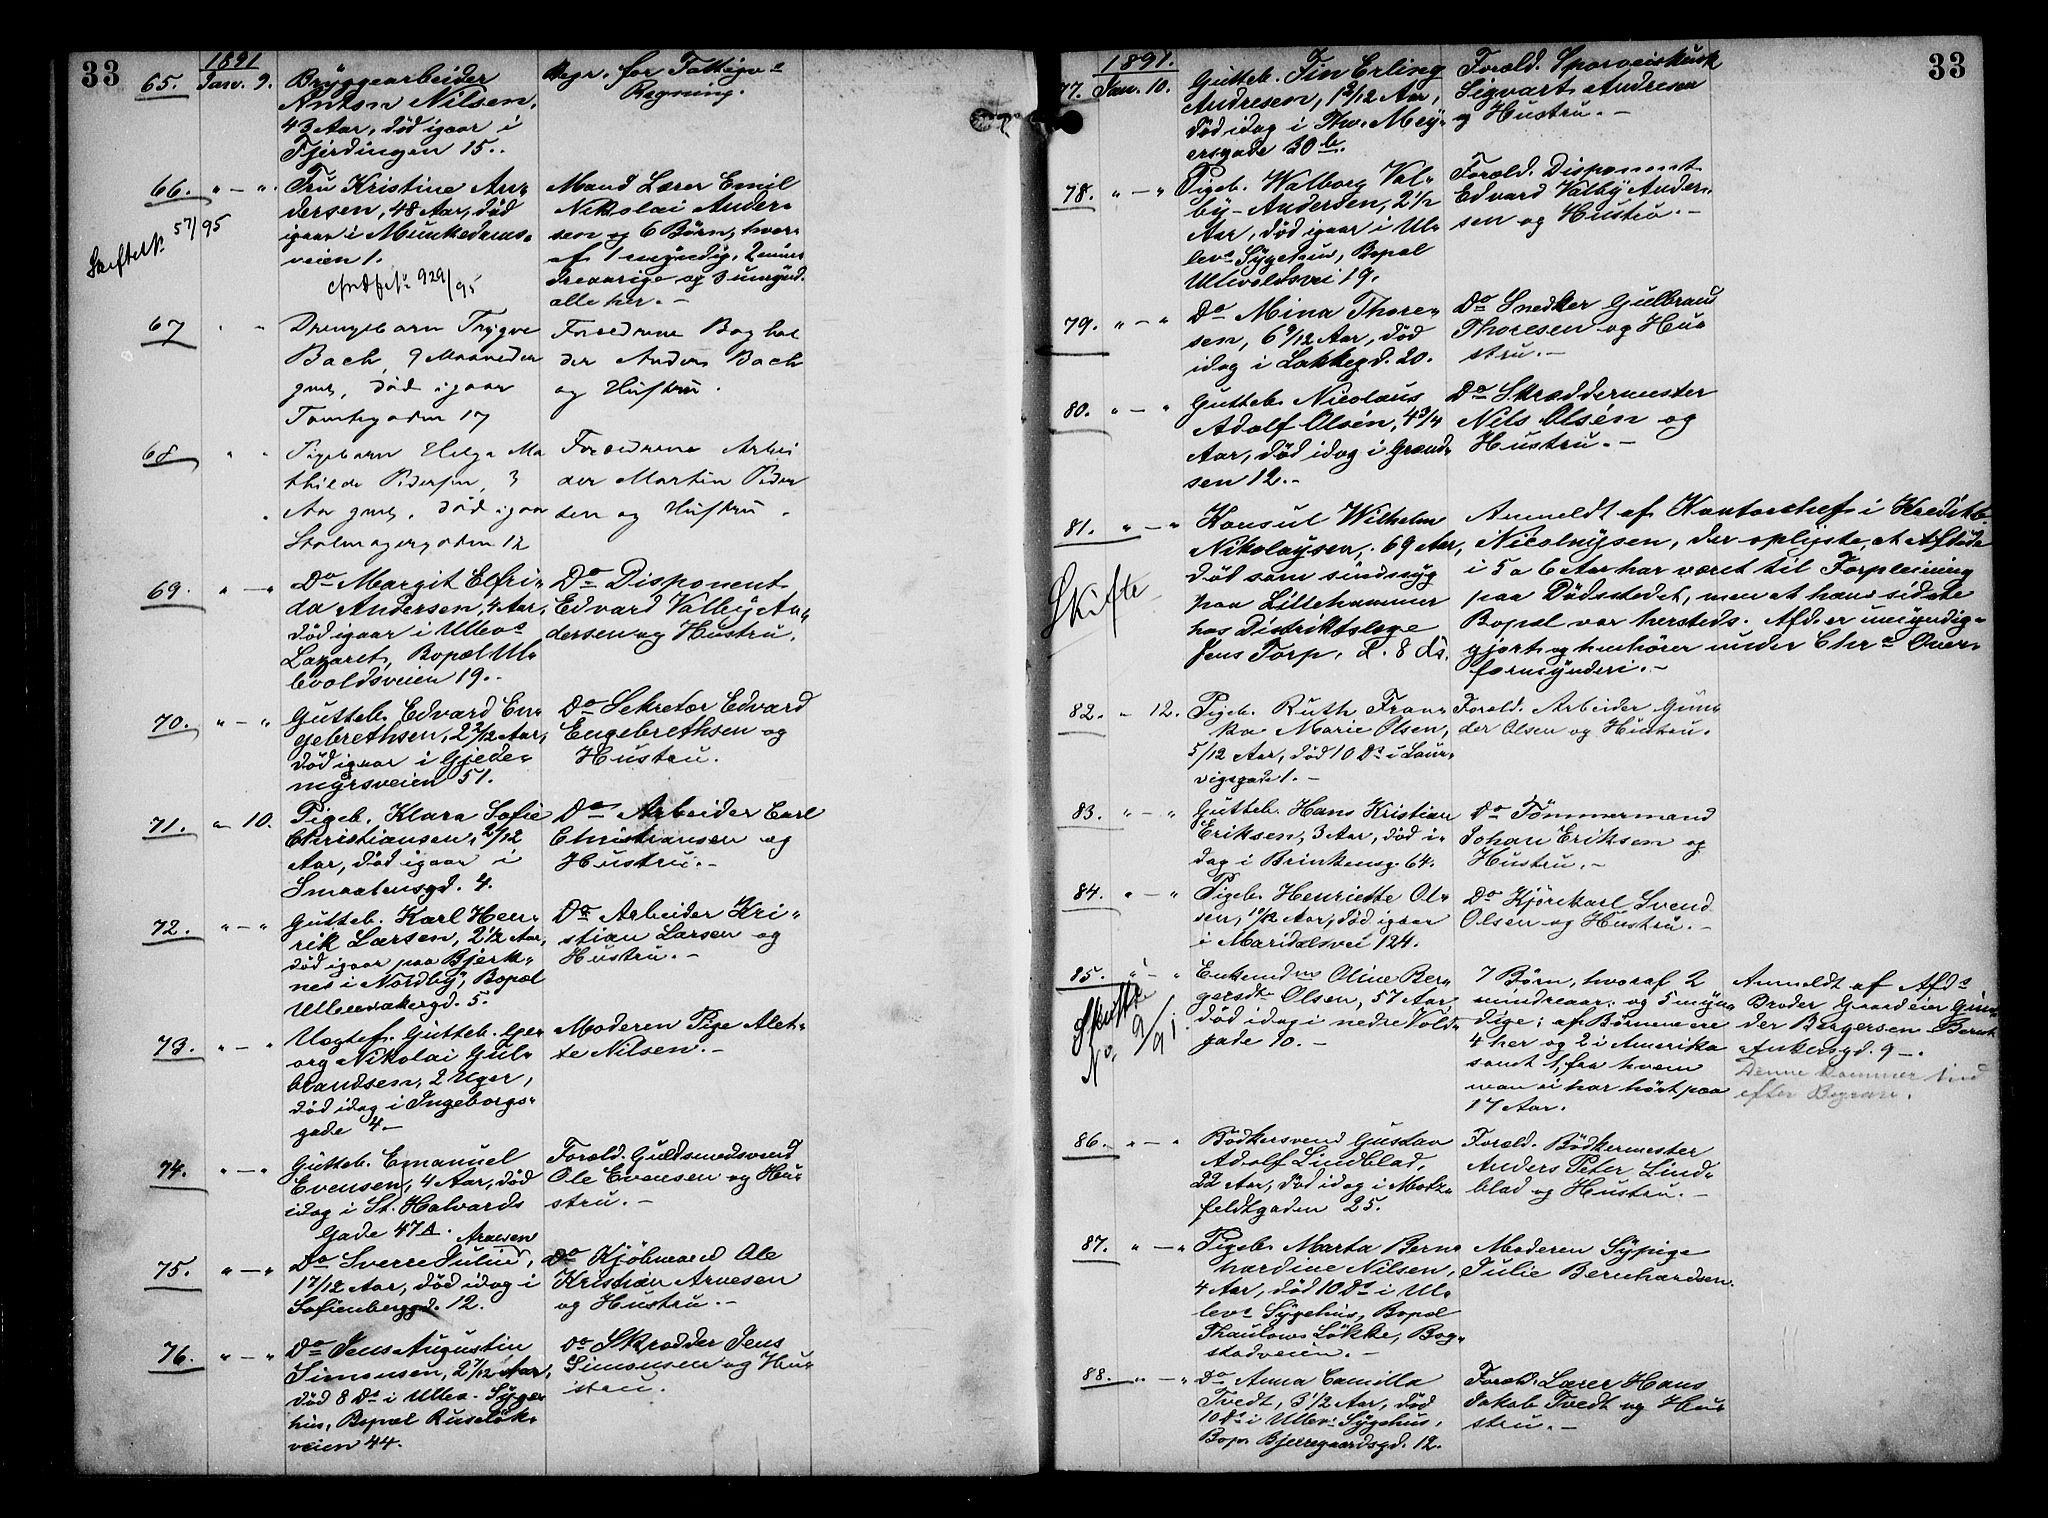 33
1891
65. Janr. 9. Bryggearbeider
Anton Nilsen,
43 Aar, död igaar i
Fjerdingen 15.
Begr. for Fattigvs
Regning.
66. " — " Fru Kristine An-
dersen, 48 Aar, död
igaar i Munkedams-
veien 1.
Mand Lærer Emil
Nikolai Ander-
sen og 6 Børn, hvor-
af 1 myndig, 2 min-
dreaarige og 3 umynd.
alle her. —
Skifte No 57/95
929/95
67 " " Drengebarn Trygve
Bach, 9 Maaneder
gml, död igaar
Tomtegaden 17
Forældrene Boghol
der Anders Bach
og Hustru.
68 " " Pigebarn Helga Ma
thilde Pedersen, 3
Aar gml, död igaar
Stolmagergaden 12
Forældrene Arbei
der Martin Peder
sen og Hustru.
69. " — " Do Margit Elfri-
da Andersen, 4 Aar,
död igaar i Ullevs
Lazaret, Bopæl Ul-
levoldsveien 19.
Do Disponent
Edvard Valby An-
dersen og Hustru.
70. " — " Gutteb. Edvard En-
gebrethsen, 2 2/12 Aar,
död igaar i Gjede-
myrsveien 51.
Do Sekretær Edvard
Engebrethsen og
Hustru.
71. " 10. Pigeb. Klara Sofie
Christiansen, 2/12
Aar, död igaar i
Smaalensgd. 4.
Do Arbeider Carl
Christiansen og
Hustru. —
72. " — " Gutteb. Karl Hen-
rik Larsen, 2 1/2 Aar,
död igaar paa Bjerk-
nes i Nordby, Bopæl
Ullevaakergd. 5.
Do Arbeider Kri-
stian Larsen og
Hustru. —
73. " — " Uægtef. Gutteb. Ge-
org Nikolai Gul-
brandsen, 2 Uger,
död idag i Ingeborgs-
gade 4 —
Moderen Pige Alet-
te Nilsen. —
74. " — " Gutteb. Emanuel
Evensen, 4 Aar, död
idag i St. Halvards
Gade 47A.
Foræld. Guldsmedsvend
Ole Evensen og Hu-
stru. —
75. " — " Do Sverre Julius Arnesen,
1 7/12 Aar, död idag i
Sofienberggd. 12.
Do Kjöbmand Ole
Kristian Arnesen
og Hustru. —
76. " — " Do Jens Augustin
Simonsen, 2 7/12 Aar,
död 8 Ds i Ullev. Syge-
hus, Bopæl Ruselök-
veien 44.
Do Skrædder Jens
Simonsen og Hu-
stru.
33
1891.
77. Jan. 10. Gutteb. Fin Erling
Andresen, 1 2/12 Aar,
död idag i Thv. Mey-
ersgade 30 b.
Foræld. Sporveiskusk
Sigvart Andresen
og Hustru. —
78. " — " Pigeb. Walborg Val-
by-Andersen, 2 1/2
Aar, död igaar i Ul-
levs Sygehus, Bopæl
Ullevoldsvei 19.
Foræld. Disponent
Edvard Valby Ander-
sen og Hustru. —
79. " — " Do Mina Thore-
sen, 6 9/12 Aar, död
idag i Lakkegd. 20.
Do Snedker Gulbran
Thoresen og Hu-
stru. —
80. " — " Gutteb. Nicolaus
Adolf Olsen, 4 3/4
Aar, död idag i Grænd-
sen 12. —
Do Skræddermester
Nils Olsén og
Hustru. —
81. " — " Konsul Wilhelm
Nikolaysen, 69 Aar,
död som sindssyg
paa Lillehammer
hos Distriktslæge
Jens Torp, d. 8 ds.
Anmeldt af Kontorchef i Kreditb.
Nicolaysen, der oplyste, at Afdöde
i 5 a 6 Aar har været til Forpleining
paa Dödsstedet, men at hans sidste
Bopæl var hersteds. Afd. er umyndig-
gjort og henhörer under Chra Over-
formynderi. —
Skifte
82. " 12. Pigeb. Ruth Fran-
ka Marie Olsen,
5/12 Aar, död 10 Ds i Laur-
vigsgade 1. —
Foræld. Arbeider Gun-
der Olsen og Hustru.
83. " — " Gutteb. Hans Kristian
Eriksen, 3 Aar, död i-
dag i Brinkensg. 64.
Do Tömmermand
Johan Eriksen og
Hustru. —
84. " — " Pigeb. Henriette Ol-
sen, 10/12 Aar, död igaar
i Maridalsvei 124.
Do Kjörekarl Svend
Olsen og Hustru. —
85. " — " Enkemdm Oline Ber-
gersdtr Olsen, 57 Aar
död idag i nedre Vold-
gade 10. —
7 Börn, hvoraf 2
mindreaar. og 5 myn-
dige; af Börnene ere
4 her og 2 i Amerika
samt 1, fra hvem
man ei har hört paa
17 Aar.
Anmeldt af Afds
Broder Gaardeier Gun-
der Bergersen Bernt
Ankersgd. 9 —.
Denne kommer ind
efter Begrav.
Skifte
No. 9/91.
86. " — " Bödkersvend Gustav
Adolf Lindblad,
22 Aar, död idag i Motz-
feldtgaden 25.
Foræld. Bödkermester
Anders Peter Lind-
blad og Hustru. —
87. " — " Pigeb. Marta Bern-
hardine Nilsen,
4 Aar, död 10 Ds i Ul-
levs Sygehus, Bopæl
Thaulows Lökke, Bog-
stadveien. —
Moderen Sypige
Julie Bernhardsen.
88. " — " Do Anna Camilla
Tvedt, 3 1/2 Aar, död
10 Ds i Ullev. Sygehus,
Bop. Bjerregaardsgd. 12.
Foræld. Lærer Hans
Jakob Tvedt og Hu-
stru. —